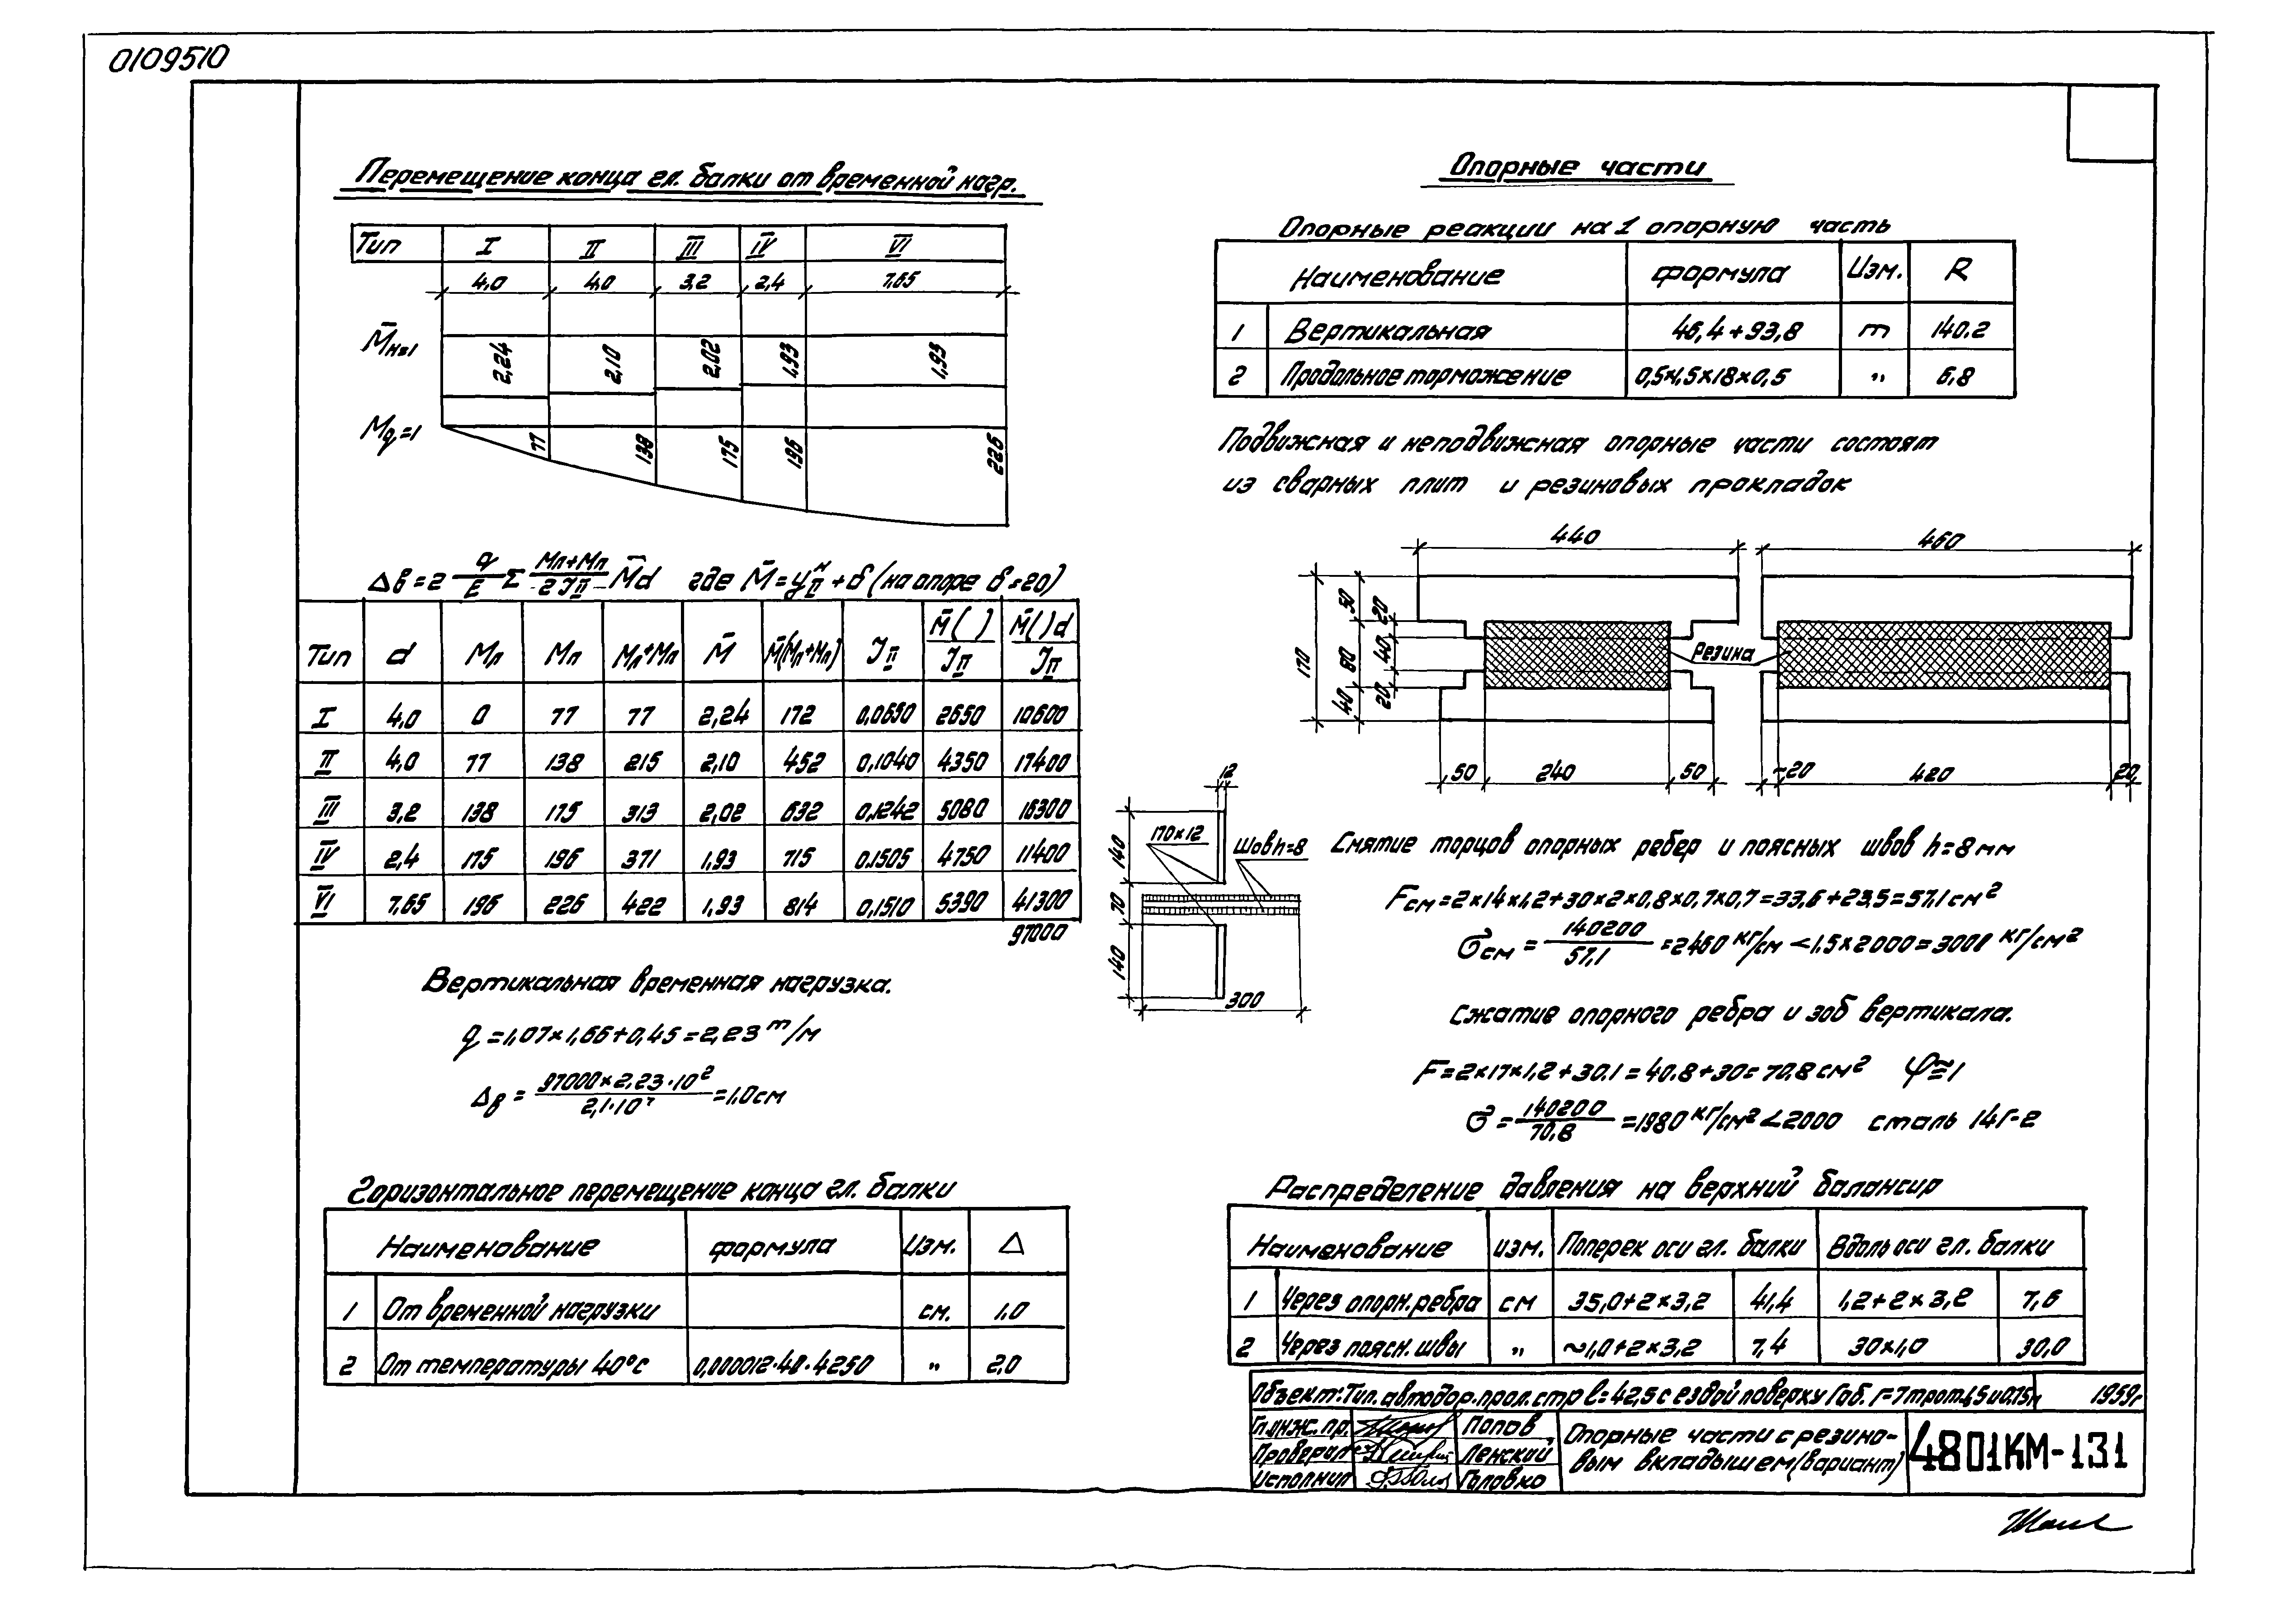 0109510
Перемещение конца гл. балки от временной нагр.
Тип I II III IV VI
4,0 4,0 3,2 2,4 7,65
M̄н=1 2,24 2,10 2,02 1,93 1,93
Mq=1 77 138 175 196 226
Δв = 2 q/E Σ (Мл+Мп)/(2JII) M̄d где M̄=yⁿII+δ (на опоре δ=20)
Тип d Мл Мп Мл+Мп M̄ M̄(Мл+Мп) JII M̄( )/JII M̄( )d/JII
I 4,0 0 77 77 2,24 172 0,0650 2650 10600
II 4,0 77 138 215 2,10 452 0,1040 4350 17400
III 3,2 138 175 313 2,02 632 0,1242 5080 16300
IV 2,4 175 196 371 1,93 715 0,1505 4750 11400
VI 7,65 196 226 422 1,93 814 0,1510 5390 41300
97000
Вертикальная временная нагрузка.
q = 1,07×1,66+0,45 = 2,23 т/м
Δв = 97000×2,23·10²/2,1·10⁷ = 1,0см
Горизонтальное перемещение конца гл. балки
Наименование формула Изм. Δ
1 От временной нагрузки см. 1,0
2 От температуры 40°с 0,000012·40·4250 " 2,0
Опорные части
Опорные реакции на 1 опорную часть
Наименование формула Изм. R
1 Вертикальная 46,4+93,8 т 140.2
2 Продольное торможение 0,5×4,5×18×0,5 " 6,8
Подвижная и неподвижная опорные части состоят
из сварных плит и резиновых прокладок
440 460
170 50 80 40 20 40 20
Резина
50 240 50 ~20 420 20
12
140 70 140
170×12
Шов h=8
300
Смятие торцов опорных ребер и поясных швов h=8мм
Fсм = 2×14×1,2+30×2×0,8×0,7×0,7 = 33,6+23,5 = 57,1 см²
σсм = 140200/57,1 = 2460 кг/см < 1,5×2000 = 3000 кг/см²
Сжатие опорного ребра и зоб вертикала.
F = 2×17×1,2+30.1 = 40.8+30 = 70,8 см² φ≈1
σ = 140200/70,8 = 1980 кг/см² < 2000 сталь 14Г-2
Распределение давления на верхний балансир
Наименование изм. Поперек оси гл. балки Вдоль оси гл. балки
1 Через опорн. ребра см 35,0+2×3,2 41,4 1,2+2×3,2 7,6
2 Через поясн. швы " ~1,0+2×3,2 7,4 30×1,0 30,0
Объект: Тип. автодор. прол. стр l=42,5 с ездой поверху Габ. Г=7 трот. 1,5 и 0.75м 1959г
Гл. инж. пр. Попов
Проверил Ленский
Исполнил Головко
Опорные части с резино-
вым вкладышем (вариант)
4801КМ-131